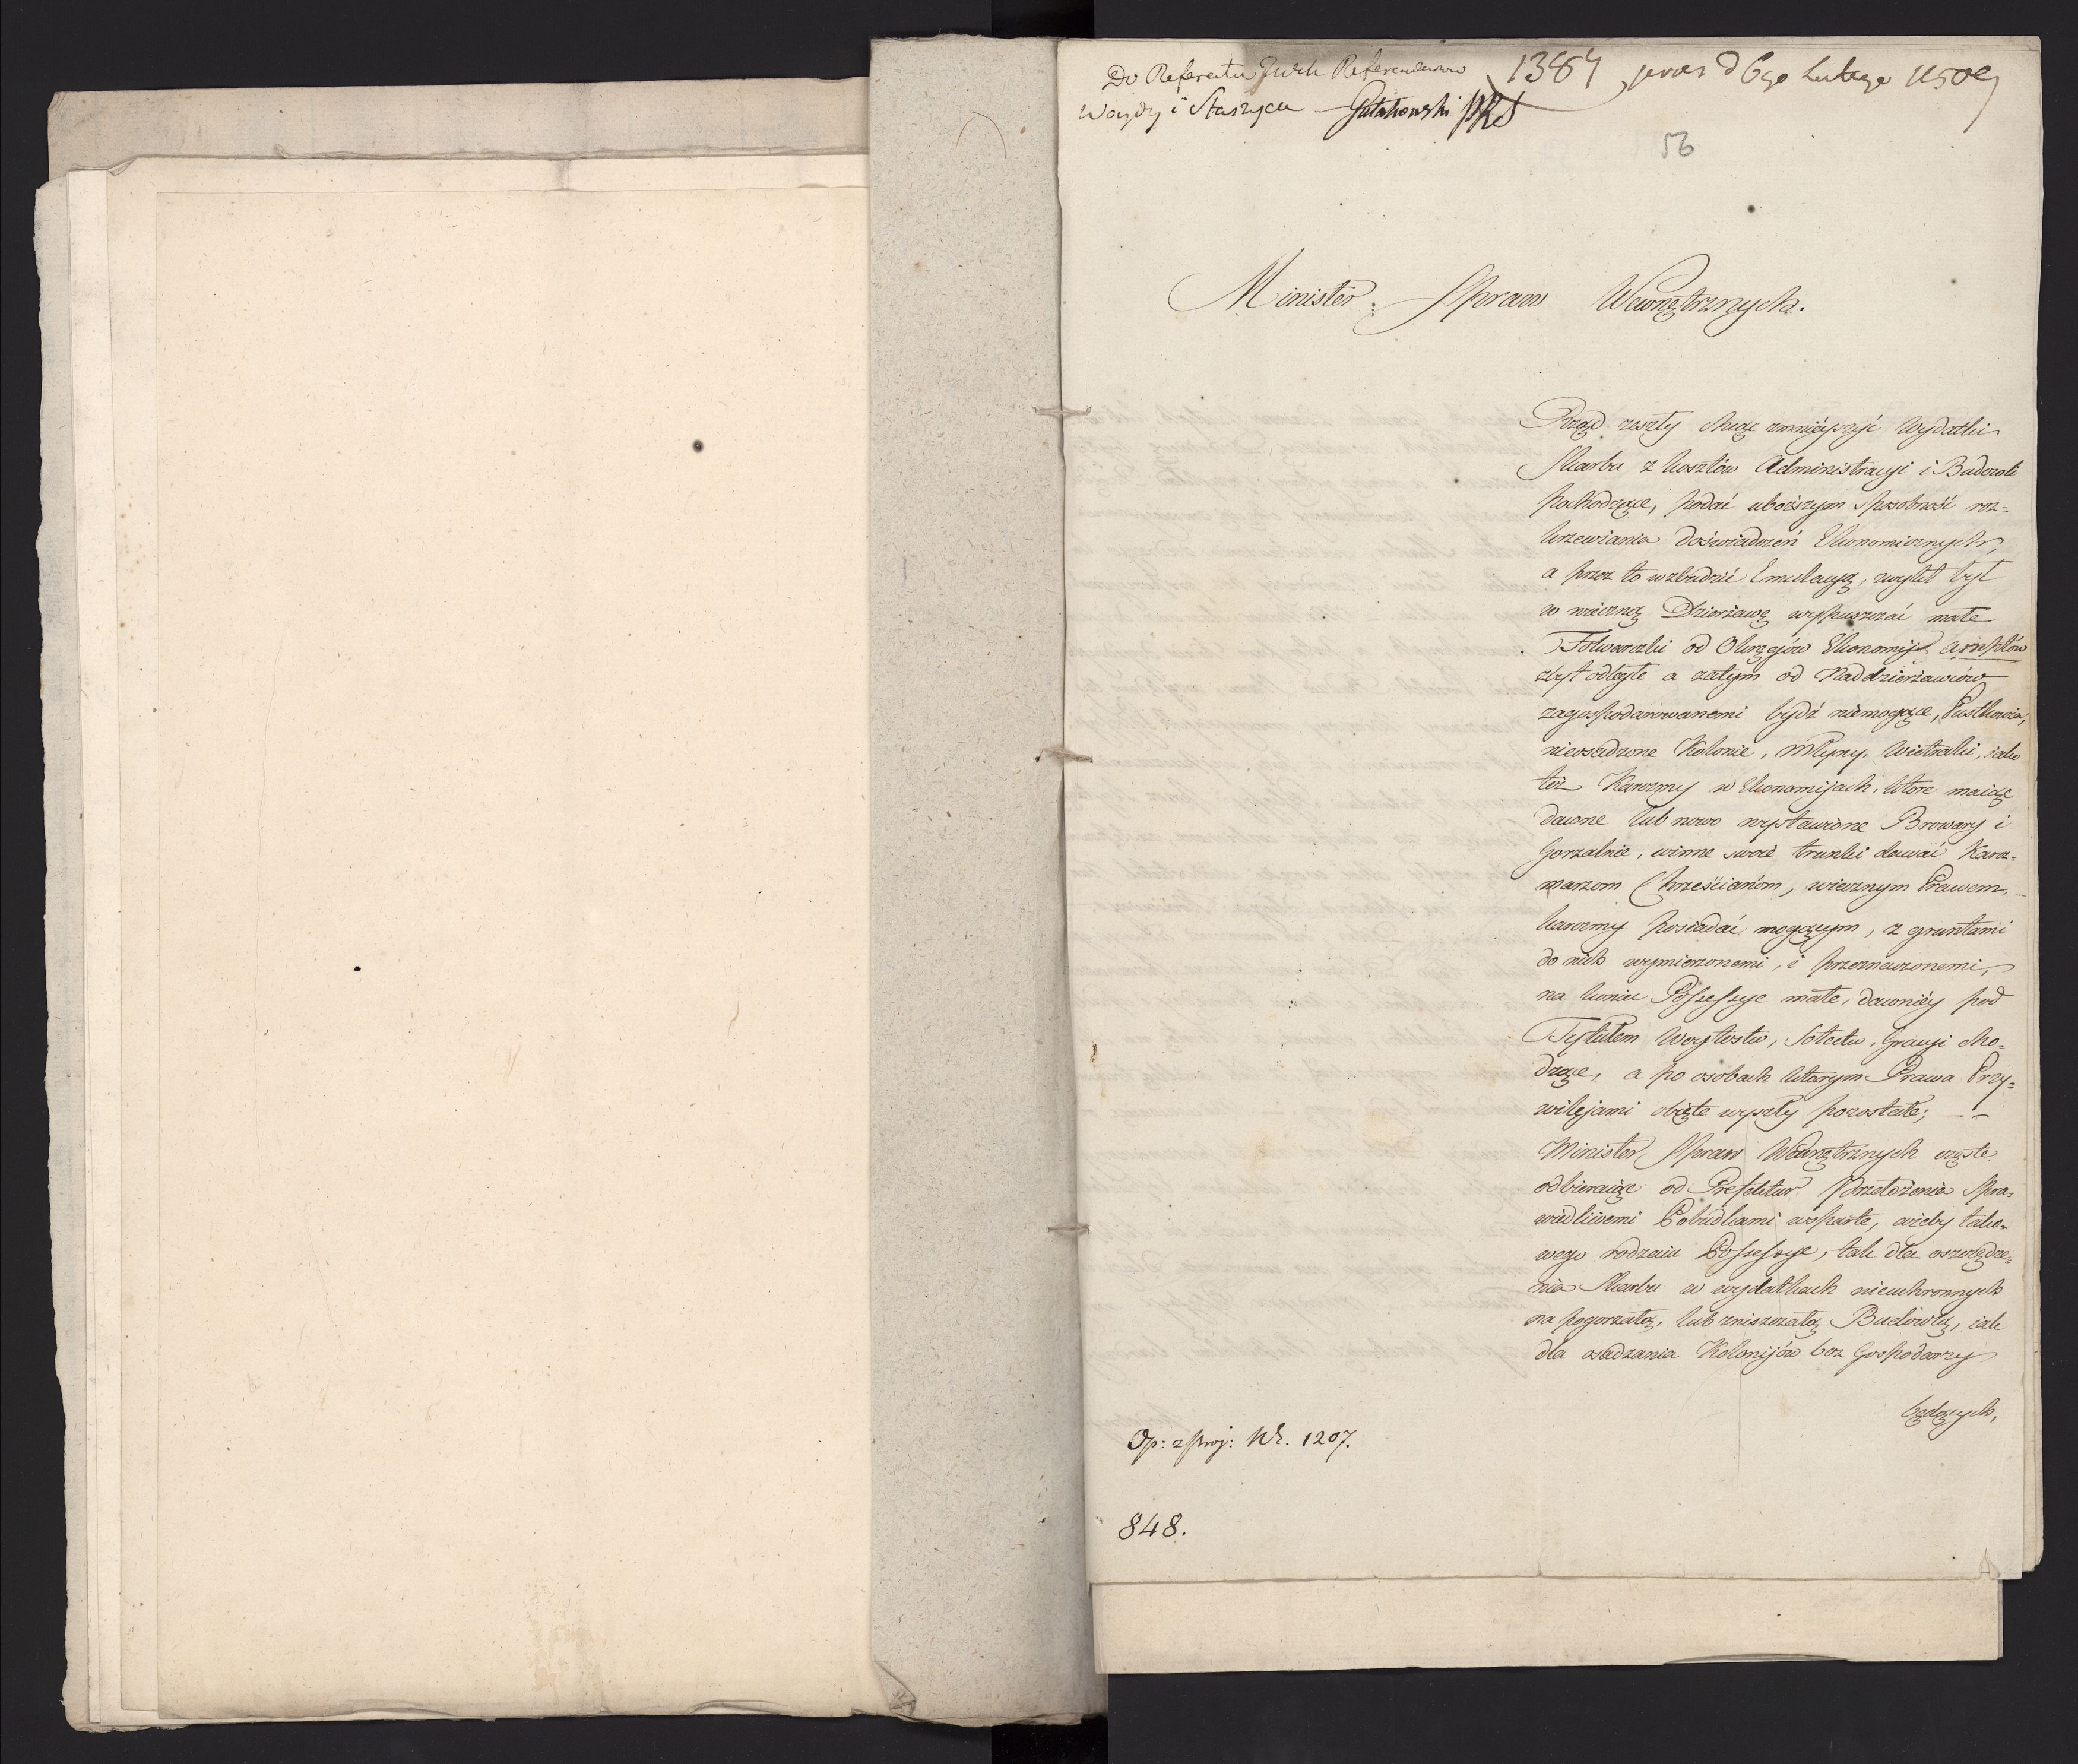 Do Referatu JWch Referendarzow
Woydy i Staszyca Gutakowski PRS
1384 praes d 6go Lutego 1809
56
Minister Spraw Wewnętrznych.
Rząd zeszły chcąc zmnieyszyć Wydatki
Skarbu z kosztów Administracyi i Budowli
pochodzące, podać uboższym sposobność roz=
krzewiania doświadczeń Ekonomicznych,
a przez to wzbudzić Emulacyą, zwykł był
w wieczną Dzierżawę wypuszczać małe
Folwarczki od Okręgów Ekonomij
zbyt odległe a zatym od Naddzierżawców
zagospodarowanemi bydź niemogące, Pustkowia,
nieosadzone Kolonie, Młyny, Wietraki, iako
też Karczmy w Ekonomijach, które maiąc
dawne lub nowo wystawione Browary i
Gorzalnie, winne swoie trunki dawać Karcz=
marzom Chrześcianom, wiecznym Prawem,
karczmy posiadać mogącym, z gruntami
do nich wymierzonemi, i przeznaczonemi,
na koniec Possessye małe, dawniéy pod
Tytułem Woytostw, Sołectw, Gracyi cho=
dzące, a po osobach którym Prawa Przy=
wilejami obięte wyszły pozostałe; —
Minister Spraw Wewnętrznych częste
odbieraiąc od Prefektur Przełożenia Spra=
wiedliwemi Pobudkami wsparte, ażeby tako=
wego rodzaiu Possessye, tak dla oszczędze=
nia Skarbu w wydatkach nieuchronnych
na pogorzałą, lub zniszczałą Budowlą, iak
dla osadzania Kolonijów bez Gospodarzy
będących,
Op: z proj: Nr. 1207.
848.